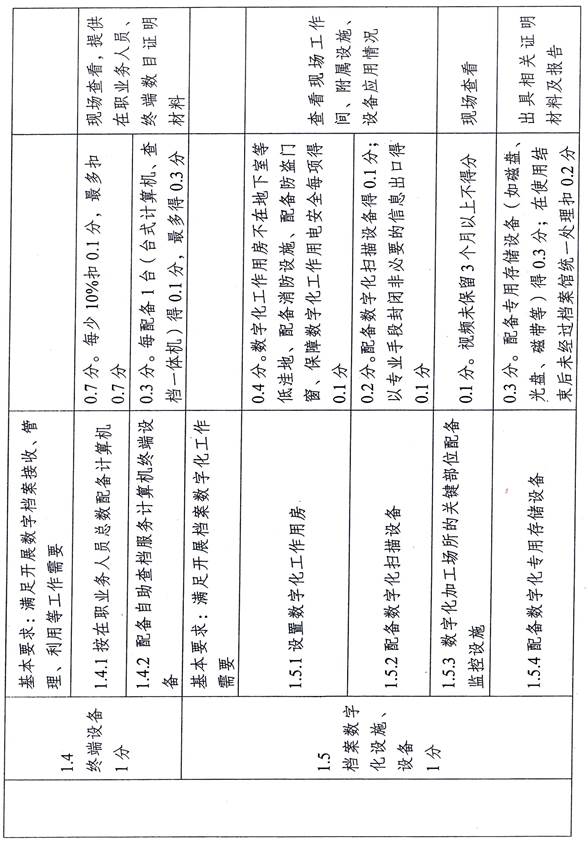 1.4
终端设备
1分
基本要求：满足开展数字档案接收、管
理、利用等工作需要
1.4.1 按在职业务人员总数配备计算机
0.7分。每少10%扣0.1分，最多扣
0.7分
现场查看，提供
在职业务人员、
终端数目证明
材料
1.4.2 配备自助查档服务计算机终端设
备
0.3分。每配备1台（台式计算机、查
档一体机）得0.1分，最多得0.3分
1.5
档案数字
化设施、
设备
1分
基本要求：满足开展档案数字化工作
需要
1.5.1 设置数字化工作用房
0.4分。数字化工作用房不在地下室等
低洼地、配备消防设施、配备防盗门
窗、保障数字化工作用电安全每项得
0.1分
查看现场工作
间、附属设施、
设备应用情况
1.5.2 配备数字化扫描设备
0.2分。配备数字化扫描设备得0.1分；
以专业手段封闭非必要的信息出口得
0.1分
1.5.3 数字化加工场所的关键部位配备
监控设施
0.1分。视频未保留3个月以上不得分
现场查看
1.5.4 配备数字化专用存储设备
0.3分。配备专用存储设备（如磁盘、
光盘、磁带等）得0.3分；在使用结
束后未经过档案馆统一处理扣0.2分
出具相关证明
材料及报告